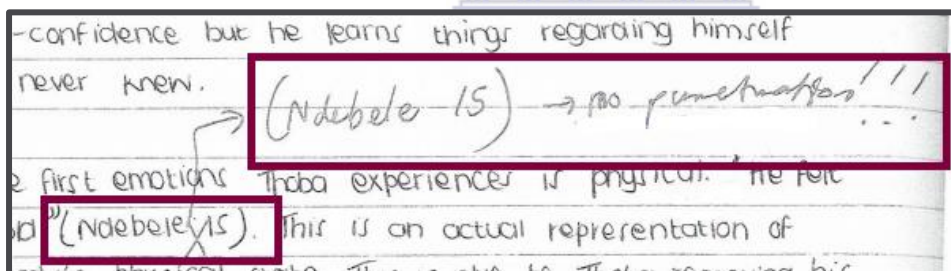 -confidence but he learns things regarding himself
never knew.
(Ndebele 15) → no punctuation!!!
e first emotions Thoba experiences is physical. "He felt
"(Ndebele 15). This is an actual representation of
physical state. This is